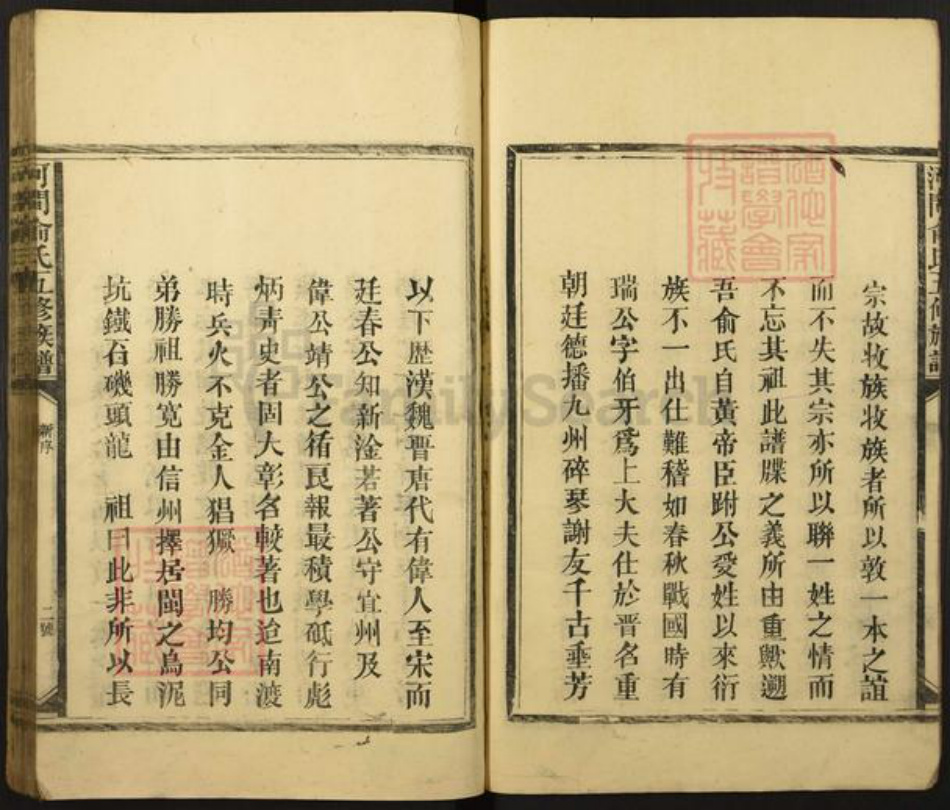 宗故收族收族者所以敦一本之誼
而不失其宗亦所以聯一姓之情而
不忘其祖此譜牒之義所由重歟遡
吾俞氏自黃帝臣跗公受姓以來衍
族不一出仕難稽如春秋戰國時有
瑞公字伯牙爲上大夫仕於晋名重
朝廷德播九州碎琴謝友千古垂芳
以下歷漢魏晋唐代有偉人至宋而
廷春公知新淦若著公守宜州及
偉公靖公之循良報最積學砥行彪
炳青史者固大彰名較著也迨南渡
時兵火不克金人猖獗 勝均公同
弟勝祖勝寬由信州擇居閩之烏泥
坑鐵石磯頭龍 祖曰此非所以長
河間俞氏五修族譜
新序
二號
FamilySearch